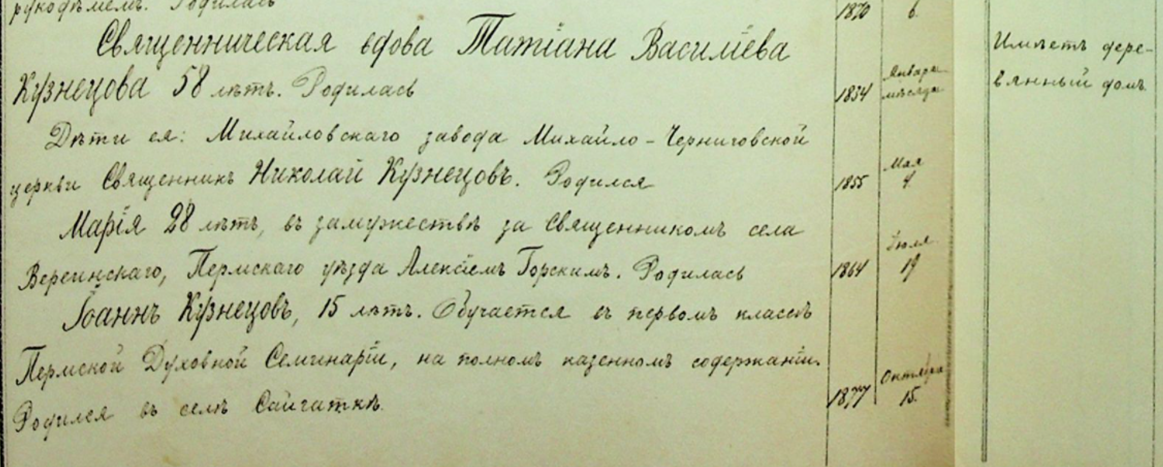 рукодѣлiемъ. Родилась 1870 6.
Священническая вдова Татiана Василiева
Кузнецова 58 лѣтъ. Родилась 1834 Января мѣсяца
Имѣетъ дере-
вянный домъ
Дѣти ея: Михайловскаго завода Михайло-Черниговской
церкви Священникъ Николай Кузнецовъ. Родился 1855 Мая 4.
Марiя 28 лѣтъ, въ замужествѣ за Священникомъ села
Верхинскаго, Пермскаго уѣзда Алексiемъ Горскимъ. Родилась 1864 Iюля 19
Iоаннъ Кузнецовъ, 15 лѣтъ. Обучается въ первомъ классѣ
Пермской Духовной Семинарiи, на полномъ казенномъ содержанiи.
Родился въ селѣ Сайгаткѣ. 1877 Октября 15.